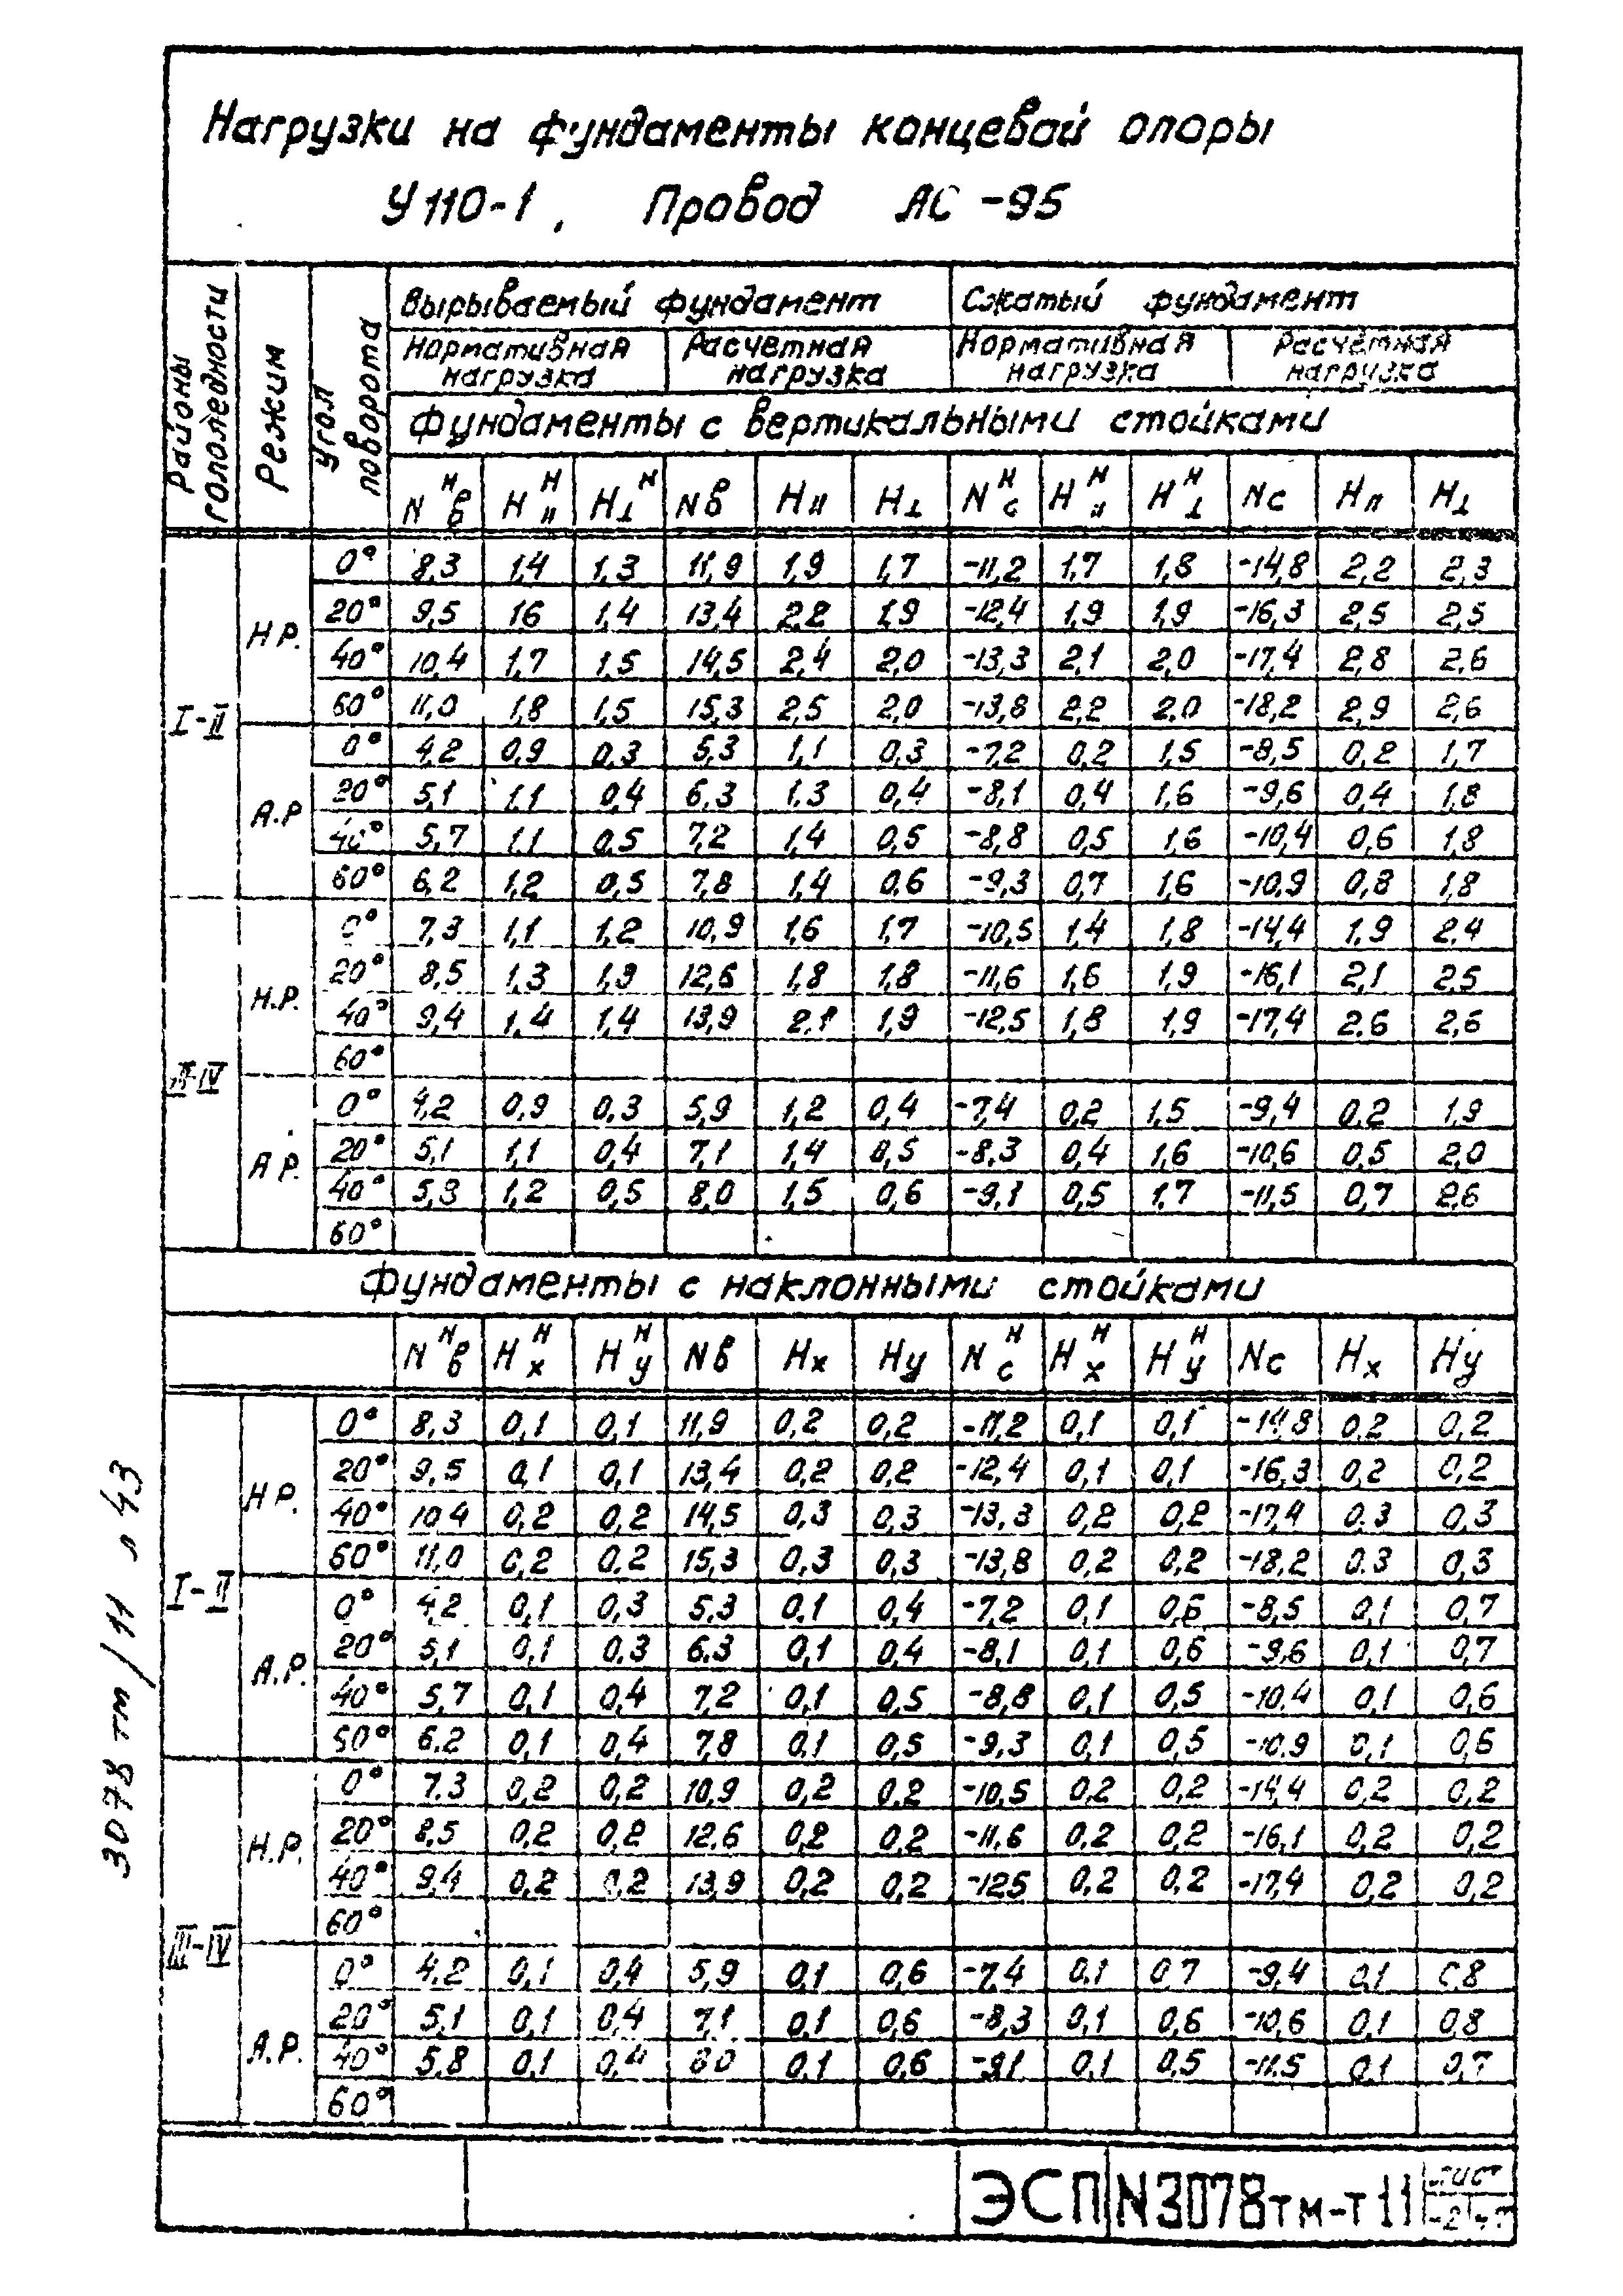 Нагрузки на фундаменты концевой опоры
У110-1. Провод АС-95
Районы гололедности
Режим
Угол поворота
Вырываемый фундамент Сжатый фундамент
Нормативная нагрузка Расчетная нагрузка Нормативная нагрузка Расчётная нагрузка
Фундаменты с вертикальными стойками
N н в H н II H н ⊥ Nв H II H ⊥ N н с H н II H н ⊥ Nс H II H ⊥
I-II
Н Р.
0° 8,3 1,4 1,3 11,9 1,9 1,7 -11,2 1,7 1,8 -14,8 2,2 2,3
20° 9,5 16 1,4 13,4 2,2 1,9 -12,4 1,9 1,9 -16,3 2,5 2,5
40° 10,4 1,7 1,5 14,5 2,4 2,0 -13,3 2,1 2,0 -17,4 2,8 2,6
60° 11,0 1,8 1,5 15,3 2,5 2,0 -13,8 2,2 2,0 -18,2 2,9 2,6
А.Р
0° 4,2 0,9 0,3 5,3 1,1 0,3 -7,2 0,2 1,5 -8,5 0,2 1,7
20° 5,1 1,1 0,4 6,3 1,3 0,4 -8,1 0,4 1,6 -9,6 0,4 1,8
40° 5,7 1,1 0,5 7,2 1,4 0,5 -8,8 0,5 1,6 -10,4 0,6 1,8
60° 6,2 1,2 0,5 7,8 1,4 0,6 -9,3 0,7 1,6 -10,9 0,8 1,8
-IV
Н.Р.
0° 7,3 1,1 1,2 10,9 1,6 1,7 -10,5 1,4 1,8 -14,4 1,9 2,4
20° 8,5 1,3 1,3 12,6 1,8 1,8 -11,6 1,6 1,9 -16,1 2,1 2,5
40° 9,4 1,4 1,4 13,9 2,1 1,9 -12,5 1,8 1,9 -17,4 2,6 2,6
60°
А Р.
0° 4,2 0,9 0,3 5,9 1,2 0,4 -7,4 0,2 1,5 -9,4 0,2 1,9
20° 5,1 1,1 0,4 7,1 1,4 0,5 -8,3 0,4 1,6 -10,6 0,5 2,0
40° 5,3 1,2 0,5 8,0 1,5 0,6 -9,1 0,5 1,7 -11,5 0,7 2,6
60°
Фундаменты с наклонными стойками
N н в H н х H н у Nв Hх Hу N н с H н х H н у Nс Hх Hу
I-II
Н Р.
0° 8,3 0,1 0,1 11,9 0,2 0,2 -11,2 0,1 0,1 -14,8 0,2 0,2
20° 9,5 0,1 0,1 13,4 0,2 0,2 -12,4 0,1 0,1 -16,3 0,2 0,2
40° 10 4 0,2 0,2 14,5 0,3 0,3 -13,3 0,2 0,2 -17,4 0.3 0,3
60° 11,0 0,2 0.2 15,3 0,3 0,3 -13,8 0,2 0,2 -18,2 0.3 0,3
А.Р.
0° 4,2 0,1 0,3 5,3 0,1 0,4 -7,2 0,1 0,6 -8,5 0,1 0,7
20° 5,1 0,1 0.3 6.3 0,1 0,4 -8,1 0,1 0,6 -9,6 0,1 0,7
40° 5,7 0,1 0,4 7,2 0,1 0,5 -8,8 0,1 0,5 -10,4 0,1 0,6
60° 6.2 0,1 0,4 7,8 0,1 0,5 -9,3 0,1 0,5 -10,9 0,1 0,6
III-IV
Н.Р.
0° 7.3 0,2 0,2 10,9 0,2 0,2 -10,5 0,2 0,2 -14,4 0,2 0,2
20° 8,5 0,2 0,2 12,6 0,2 0,2 -11,6 0,2 0,2 -16,1 0,2 0,2
40° 9,4 0,2 0,2 13,9 0,2 0,2 -125 0,2 0,2 -17,4 0,2 0,2
60°
А.Р.
0° 4,2 0,1 0,4 5,9 0,1 0,6 -7,4 0,1 0 7 -9,4 0,1 0,8
20° 5,1 0,1 0,4 7,1 0,1 0,6 -8,3 0,1 0,6 -10,6 0,1 0,8
40° 5,8 0,1 0,4 8 0 0,1 0,6 -9,1 0,1 0,5 -11,5 0,1 0,7
60°
3078 тм/11 л 43
ЭСП N3078тм-т11 лист